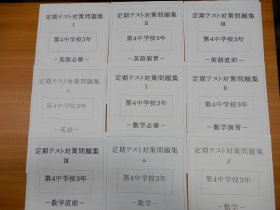 定期テスト対策問題集
I
第4中学校3年
－英語必修－
定期テスト対策問題集
II
第4中学校3年
－英語演習－
定期テスト対策問題集
III
第4中学校3年
－英語直前－
定期テスト対策問題集
α
第4中学校3年
－英語－
定期テスト対策問題集
I
第4中学校3年
－数学必修－
定期テスト対策問題集
II
第4中学校3年
－数学演習－
定期テスト対策問題集
III
第4中学校3年
－数学直前－
定期テスト対策問題集
α
第4中学校3年
－数学－
定期テスト対策問題集
β
第4中学校3年
－数学－